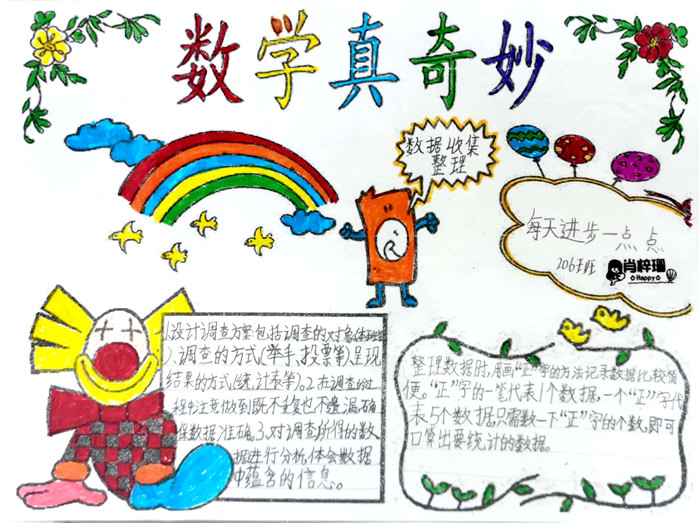 数学真奇妙
数据收集
整理
每天进步一点点
206班
肖梓珊
Happy
1.设计调查方案包括调查的对象(本班
)、调查的方式(举手、投票等)呈现
结果的方式(统计表等)。2.在调查的过
程中注意做到既不重复也不遗漏,确
保数据准确。3、对调查所得的数
据进行分析,体会数据
中蕴含的信息。
整理数据时,用画"正"字的方法记录数据比较简
便。"正"字的一笔代表1个数据,一个"正"字代
表5个数据,只需数一下"正"字的个数,即可
口算出要统计的数据。